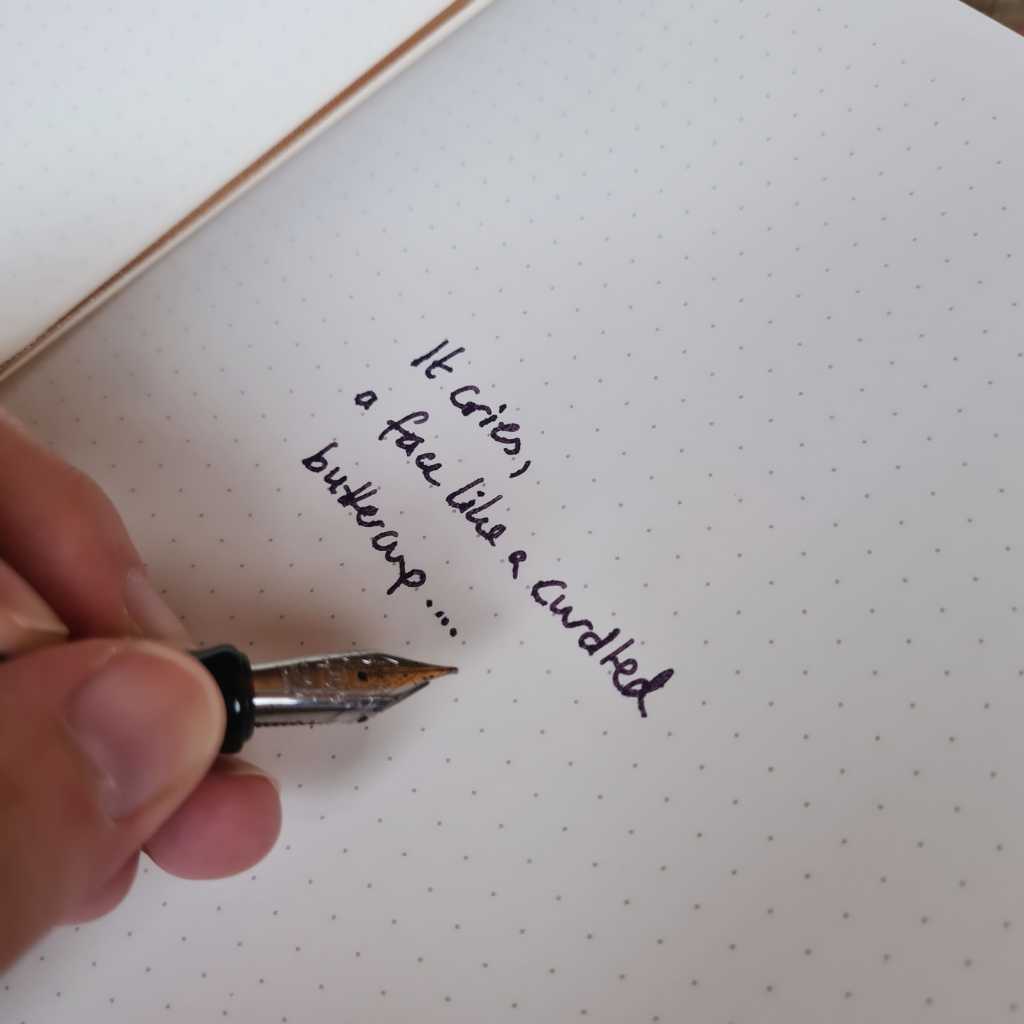 It cries,
a face like a curdled
buttercup....